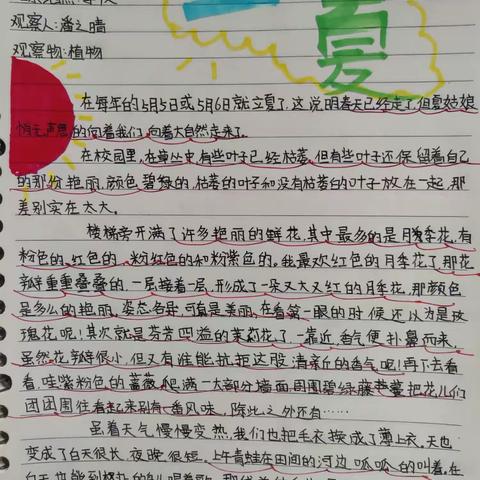 观察人:潘之晴
夏
观察物:植物
在每年的5月5日或5月6日就立夏了.这说明春天已经走了.但夏姑娘
悄无声息的向着我们,向着大自然走来了.
在校园里,在草丛中,有些叶子已经枯萎,但有些叶子还保留着自己
的那份艳丽,颜色碧绿的,枯萎的叶子和没有枯萎的叶子放在一起,那
差别实在太大。
楼梯旁开满了许多艳丽的鲜花,其中最多的是月季花,有
粉色的、红色的、粉红色的和粉紫色的。我最欢红色的月季花了,那花
瓣重重叠叠的,一层接着一层,形成了一朵又大又红的月季花,那颜色
是多么的艳丽,姿态各异,可真是美丽,在看第一眼的时候还以为是玫
瑰花呢!其次就是芬芳四溢的茉莉花了,一靠近,香气便扑鼻而来,
虽然花瓣很小,但又有谁能抗拒这股清新的香气呢!再下去看
看,哇紫粉色的蔷薇爬满一大部分墙面,周围碧绿藤蔓把花儿们
团团围住看起来别有一番风味,除此之外还有……
虽着天气慢慢变热,我们也把毛衣换成了薄上衣,天也
变成了白天很长,夜晚很短,上午青蛙在田间的河边呱呱的叫着,在